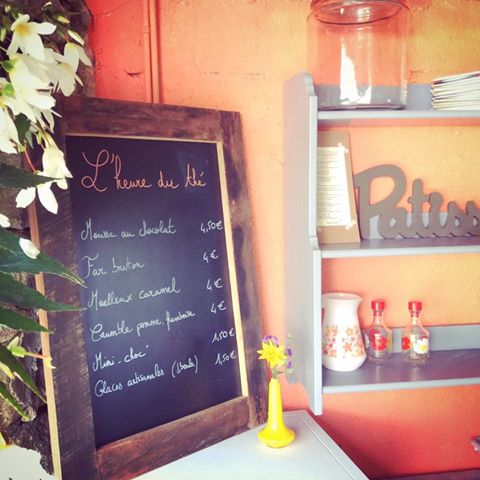 L'heure du thé
Mousse au chocolat 4,50€
Far breton 4€
Moelleux caramel 4€
Crumble pomme, framboise 4€
Mini-choc' 1,50€
Glaces artisanales (1 boule) 1,50€
Patiss